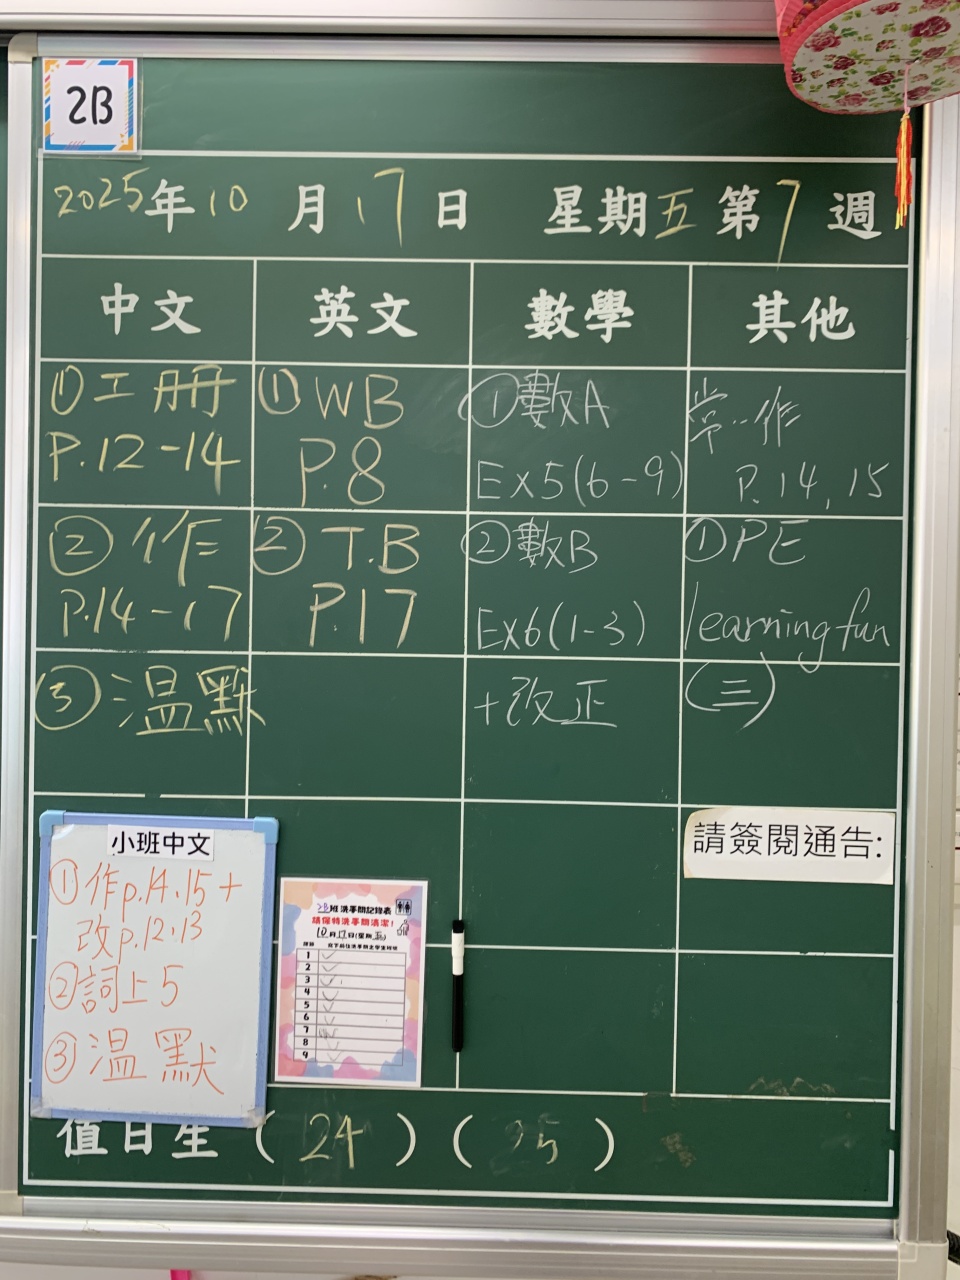 2B
2025年10月17日 星期五第7週
中文 英文 數學 其他
①工册
P.12-14
①WB
P.8
①數A
Ex5(6-9)
常..作
P.14,15
②作
P.14-17
②T.B
P.17
②數B
Ex6(1-3)
①PE
learning fun
③温默
+改正
(三)
請簽閱通告:
小班中文
①作p.14.15+
改p.12.13
②詞上5
③温默
2B班洗手間記錄表
請保持洗手間清潔!
10月17日(星期五)
1
2
3
4
5
6
7
8
9
值日生(24)(25)